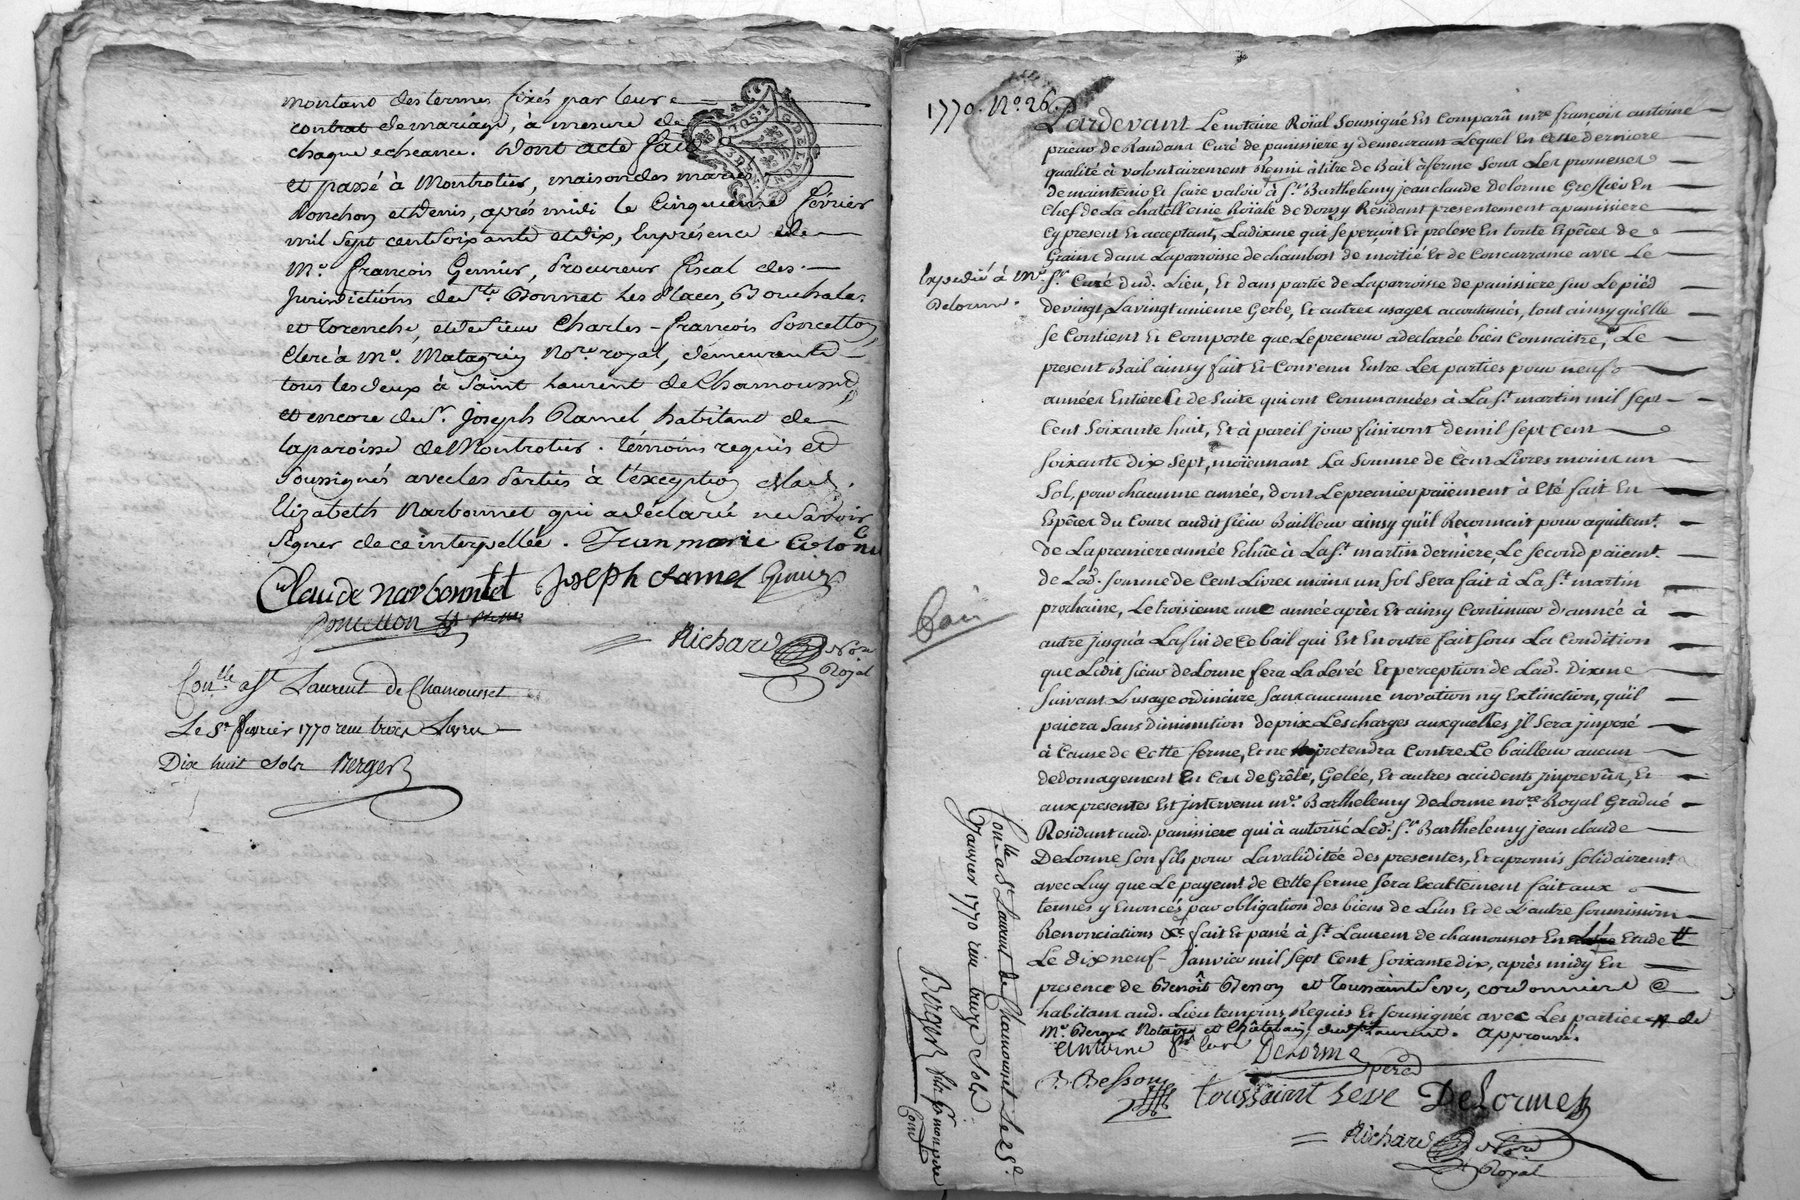 montant des termes fixés par leur
contrat de mariage, à mesure de
chaque echeance. Dont acte fait
et passé à Montrotier, maison des mariés
Ponchon et Denis, après midi le Cinquieme fevrier
mil sept cent soixante et dix, En présence de
Me. françois Genier, Procureur fiscal des
Jurisdictions de St. Bonnet les Places, Bouchala
et Torenche, et de sieur Charles-françois Poncetton,
Clerc à Me. Matagrin Nore. royal, demeurants
tous les deux à Saint Laurent de Chamousset,
et encore de Sr. Joseph Ramel habitant de
la paroisse de Montrotier. temoins requis et
soussignés avec les Parties à l'exception de lad.
Elizabeth Narbonnet qui a déclaré ne savoir
signer de ce interpellée. Jean marie
Claude narbonnet Joseph Ramel
Poncetton
Richard Nore
Royal
Conlle a St Laurent de Chamousset
Le 5e fevrier 1770 reçu trois Livres
Dix huit Sols Berger
1770. No. 26.
Pardevant Le notaire Roïal soussigné Est Comparû mre françois antoine
prieur de Randans Curé de panissiere y demeurant Lequel En Cette derniere
qualité à volontairement Remis à titre de Bail à ferme sous Les promesses
de maintenir Et faire valoir à Sr. Barthelemy jean claude Delorme Greffier En
Chef de La chatellenie Roïale de Donzy Residant presentement a panissiere
Cy present Et acceptant, La dixme qui se perçoit Et preleve En toute Espèces de
Grains dans La parroisse de chambost de moitié Et de Concurrance avec Le
Sr. Curé dud. Lieu, Et dans partie de La parroisse de panissiere sur Le pied
de vingt La vingt unieme Gerbe, Et autres usages accoutumés, tout ainsy qu'elle
se Contient Et Comporte que Le preneur a declarée bien Connaitre, Le
present Bail ainsy fait Et Convenu Entre Les parties pour neuf
années Entieres Et de suite qui ont Commancées à La St. martin mil sept
Cent Soixante huit, Et à pareil jour finiront de mil sept Cent
soixante dix sept, moïennant La Somme de Cent Livres moins un
Sol, pour chacunne année, dont Le premier païement à Eté fait En
Espêces du Cours audit sieur Bailleur ainsy qu'il Reconnait pour aquitemt.
de La premiere année Echûe à La St. martin derniere, Le second païemt.
de Lad. somme de Cent Livres moins un Sol sera fait à La St. martin
prochaine, Le troisieme une année après Et ainsy Continuer d'année à
autre jusqu'à La fin de Ce bail qui Est En outre fait sous La Condition
que Ledit sieur delorme fera La Levée Et perception de Lad. Dixme
suivant L'usage ordinaire sans aucunne novation ny Extinction, qu'il
paiera sans diminution de prix Les charges auxquelles jl sera jmposé
à Cause de Cette ferme, Et ne pretendra Contre Le bailleur aucun
dedomagement En Cas de Grêle, Gelée, Et autres accidents jmprevûs, Et
aux presentes Est jntervenu me. Barthelemy Delorme nore. Royal Gradué
Residant aud. panissiere qui à autorisé Led. Sr. Barthelemy jean claude
Delorme son fils pour La validitée des presentes, Et a promis solidairemt.
avec Luy que Le payemt. de Cette ferme sera Exactement fait aux
termes y Enoncés par obligation des biens de L'un Et de L'autre soumissions
Renonciations &c. fait Et passé à St. Laurent de chamousset En Etude
Le dix neuf janvier mil sept Cent soixante dix, après midy En
presence de Benoît Besson et Toussaint Seve, cordonniers
habitans aud. Lieu temoins Requis Et soussignés avec Les parties de
Me. Berger Notaire et Châtelain dud. St. Laurent. approuvé.
Delorme
pere
B. Besson toussaint seve DeLorme
Richard Nore
Royal
Expedié à Mr.
Delorme.
Conlle a St Laurent de Chamousset Le 25e
Janvier 1770 reçu treize Sols
Berger fils pr mon pere